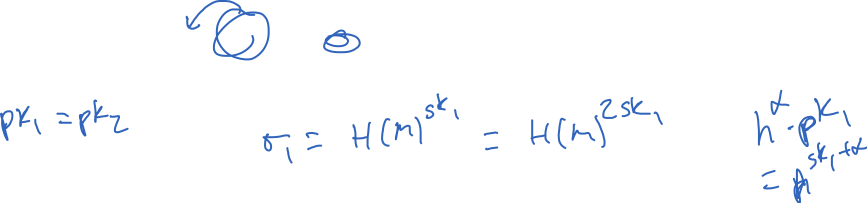 pk₁ = pk₂
σ₁ = H(m)^{sk₁} = H(m)^{2sk₁}
h^α · pk₁
= h^{sk₁+α}